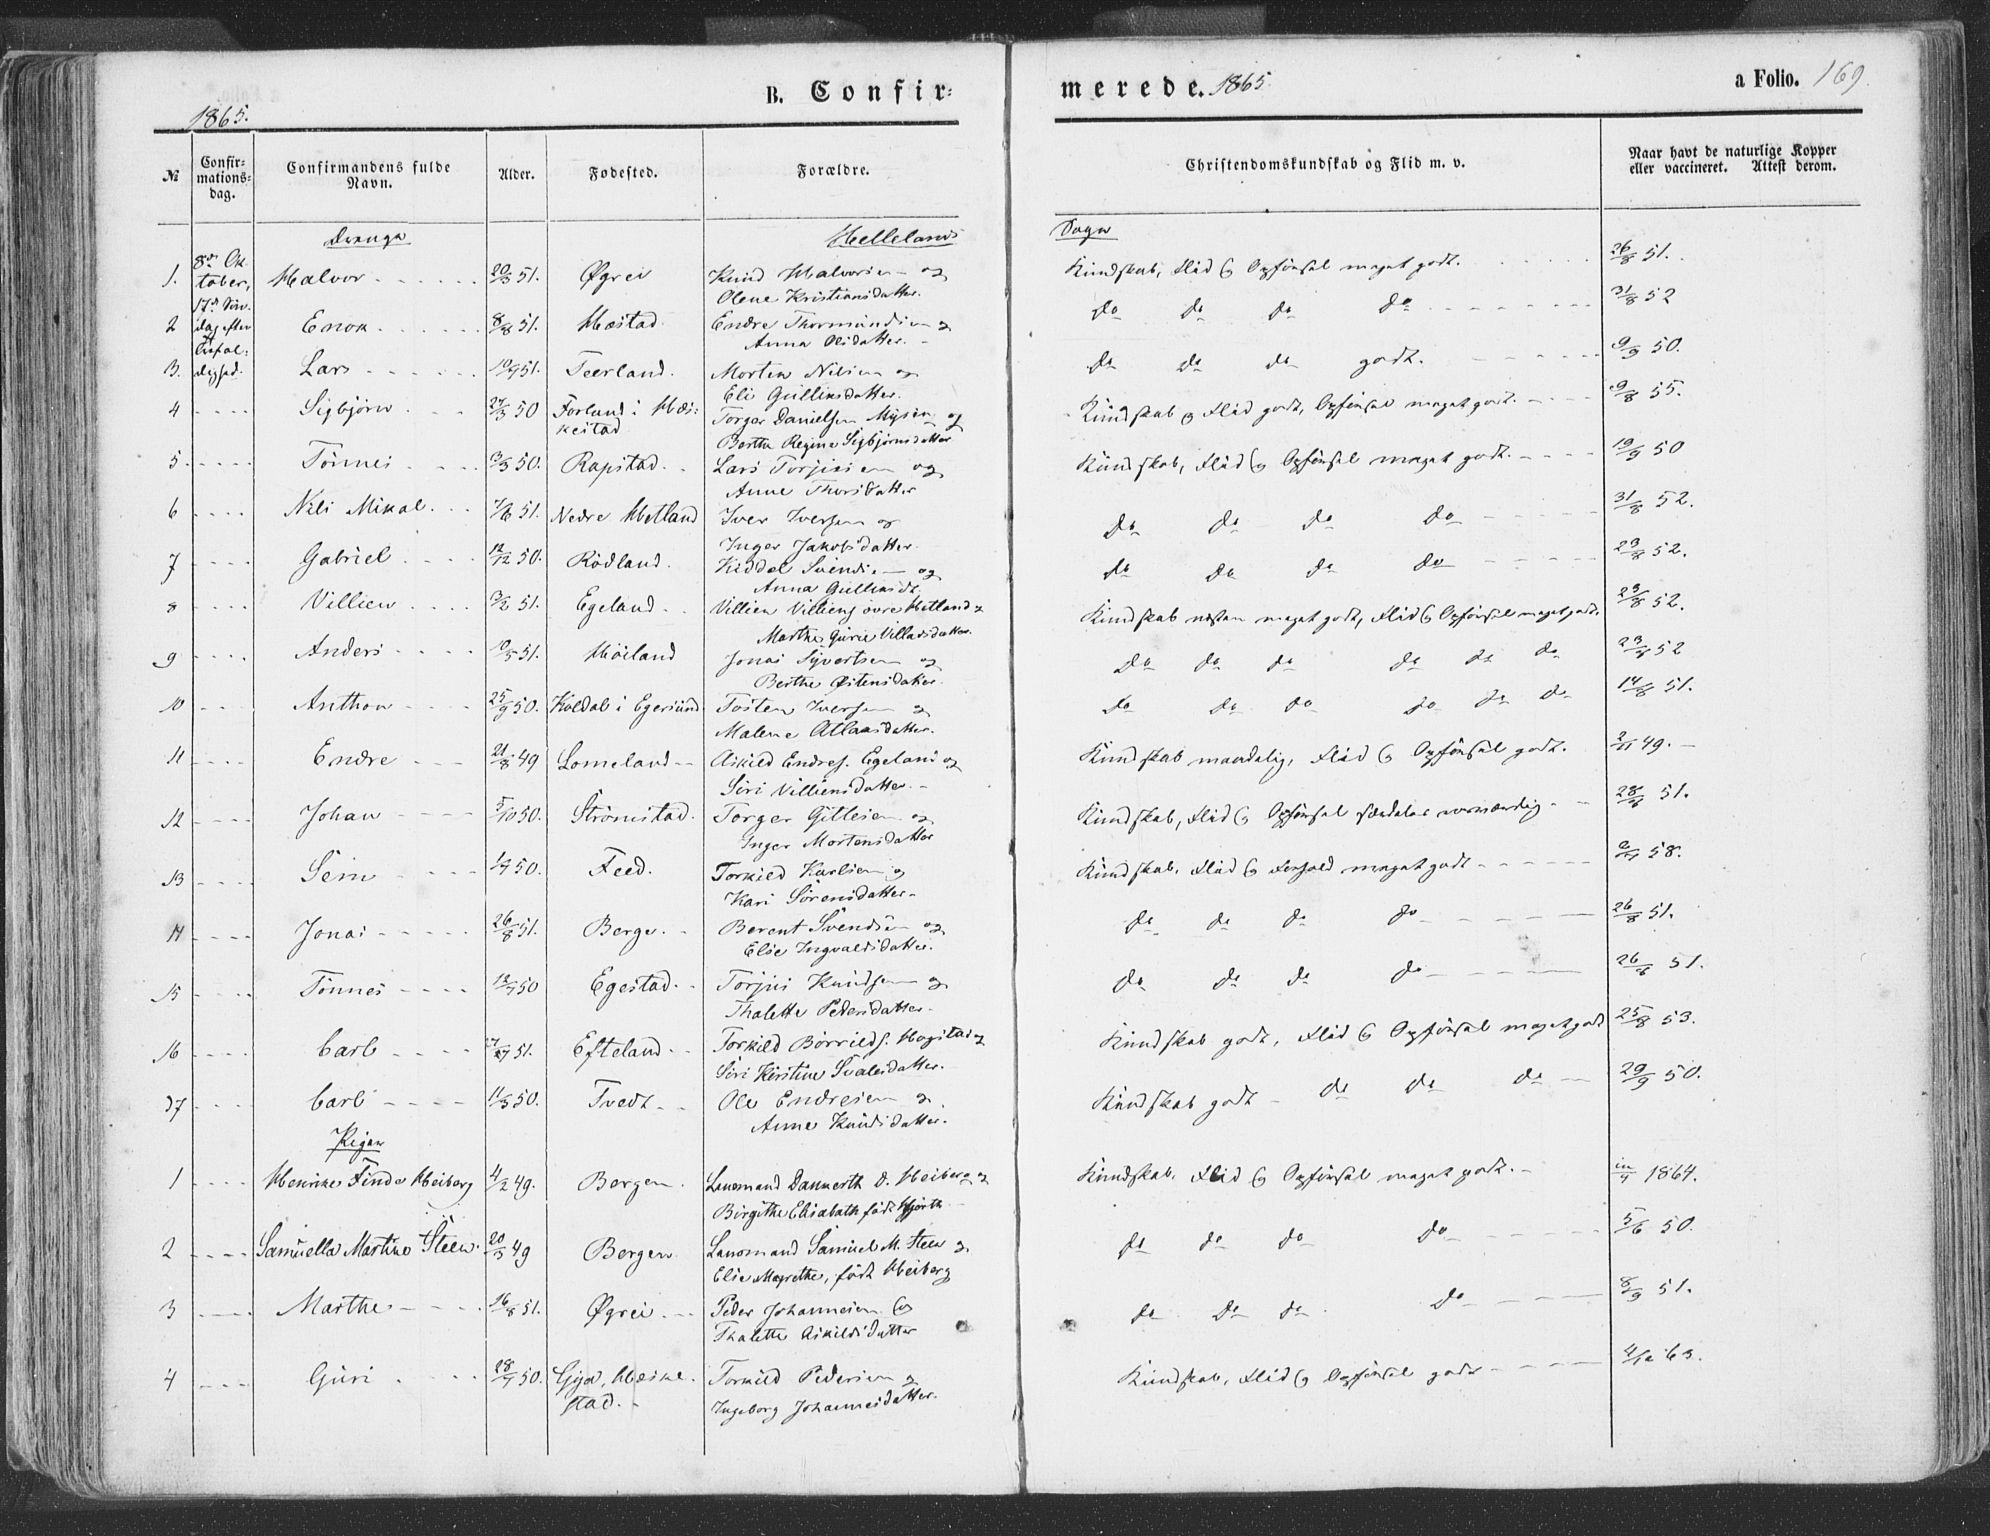 B. Confir=
merede. 1865
a Folio. 169.
1865.
№ Confir=mations=dag. Confirmandens fulde Navn. Alder. Fødested. Forældre. Christendomskundskab og Flid m. v. Naar havt de naturlige Kopper eller vaccineret. Attest derom.
Drenge Hellelands Sogn
1. 8de Ok Halvor 20/3 51. Øgrei Knud Halvorsen og Kundskab, Flid & Opførsel meget godt. 26/8 51.
tober, Olene Kristiansdatter.
17de Søn
2 dag efter Enok 8/8 51. Hæstad. Endre Thormundsen og do do do do 31/8 52
Anna Olsdatter.
3. Lars 10/9 51. Teerland. Morten Nilsen og do do do godt. 9/9 50.
Eli Gullensdatter.
4 Sigbjørn 24/3 50 Forland i Hæs= Torger Danielsen Mysen og Kundskab & Flid godt, Opførsel meget godt. 9/8 55.
kestad Berthe Regine Sigbjørnsdatter
5. Tønnes 3/3 50. Rapstad. Lars Torjesen og Kundskab, Flid & Opførsel meget godt. 19/9 50
Anne Thorsdatter
6 Nils Mikal. 7/6 51. Nedre Hetland Iver Iversen og do do do do 31/8 52.
Inger Jakobsdatter.
7 Gabriel 12/12 50. Rødland. Kiddel Svendsen og do do do do 23/8 52.
Anna Gullensdt.
8 Villien 3/2 51. Egeland Villien Villiens øvre Hetland og Kundskab næsten meget godt, Flid & Opførsel meget godt. 23/8 52.
Marthe Gurie Villasdatter.
9 Anders 10/5 51. Høiland Jonas Syvertsen og do do do do do do 23/8 52
Berthe Østensdatter.
10 Anthon 25/9 50. Koldal i Egersund Tosten Iversen og do do do do do do 14/8 51.
Malene Atlaasdatter.
11 Endre 21/8 49 Lomeland Askild Endres. Egeland og Kundskab maadelig, Flid & Opførsel godt. 2/11 49.
Siri Villiensdatter.
12 Johan 5/10 50. Strømstad. Torger Gitlesen og Kundskab, Flid & Opførsel 28/8 51.
Inger Mortensdatter
13 Sem 50. Feed. Torkild Karlsen og Kundskab, Flid & Forhold meget godt 58.
Kari Sørensdatter.
14 Jonas 26/8 51. Berge. Berent Svendsen og do do do do 26/8 51.
Elise Ingvaldsdatter.
15 Tønnes 12/7 50 Egestad. Torjus Knudsen og do do do do 26/6 51.
Thalette Pedersdatter.
16 Carl 51. Efteland Torkild Børrilds. Hogstad og Kundskab godt, Flid & Opførsel meget godt 25/8 53.
Siri Kirstine Svalesdatter.
17 Carl 11/3 50. Tvedt Ole Endresen og Kundskab godt do do do 29/9 50.
Anne Knudsdatter.
Piger
1 Henrikke Finde Heiberg 4/2 49. Bergen. Lensmand Dankerth D. Heiberg og Kundskab, Flid & Opførsel meget godt. 1864.
Birgithe Elisabeth født Hjorth
2 Samuella Martine Steen. 20/3 49 Bergen Lensmand Samuel M. Steen og do do do do 5/6 50.
Elise Magrethe, født Heiberg
3 Marthe 16/8 51. Øgrei Peder Johannesen og do do do do 8/9 51.
Thalette Askildsdatter
4 Guri 28/7 50. Gya, Hæske= Torkild Pedersen og Kundskab, Flid & Opførsel godt 4/12 63.
stad. Ingeborg Johannesdatter.